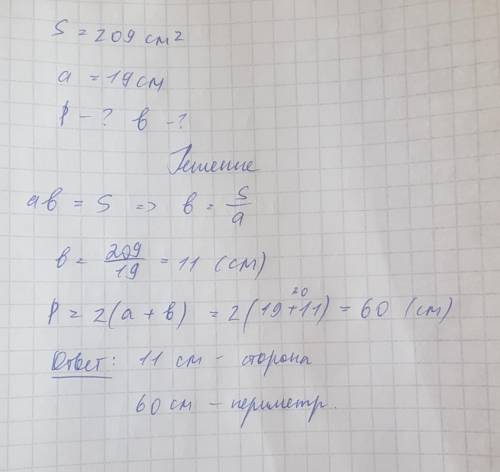 S = 209 см²
a = 19 см
P - ? в - ?
Решение
ав = S => в = S/a
в = 209/19 = 11 (см)
20
P = 2(а + в) = 2(19+11) = 60 (см)
Ответ: 11 см - сторона
60 см - периметр.